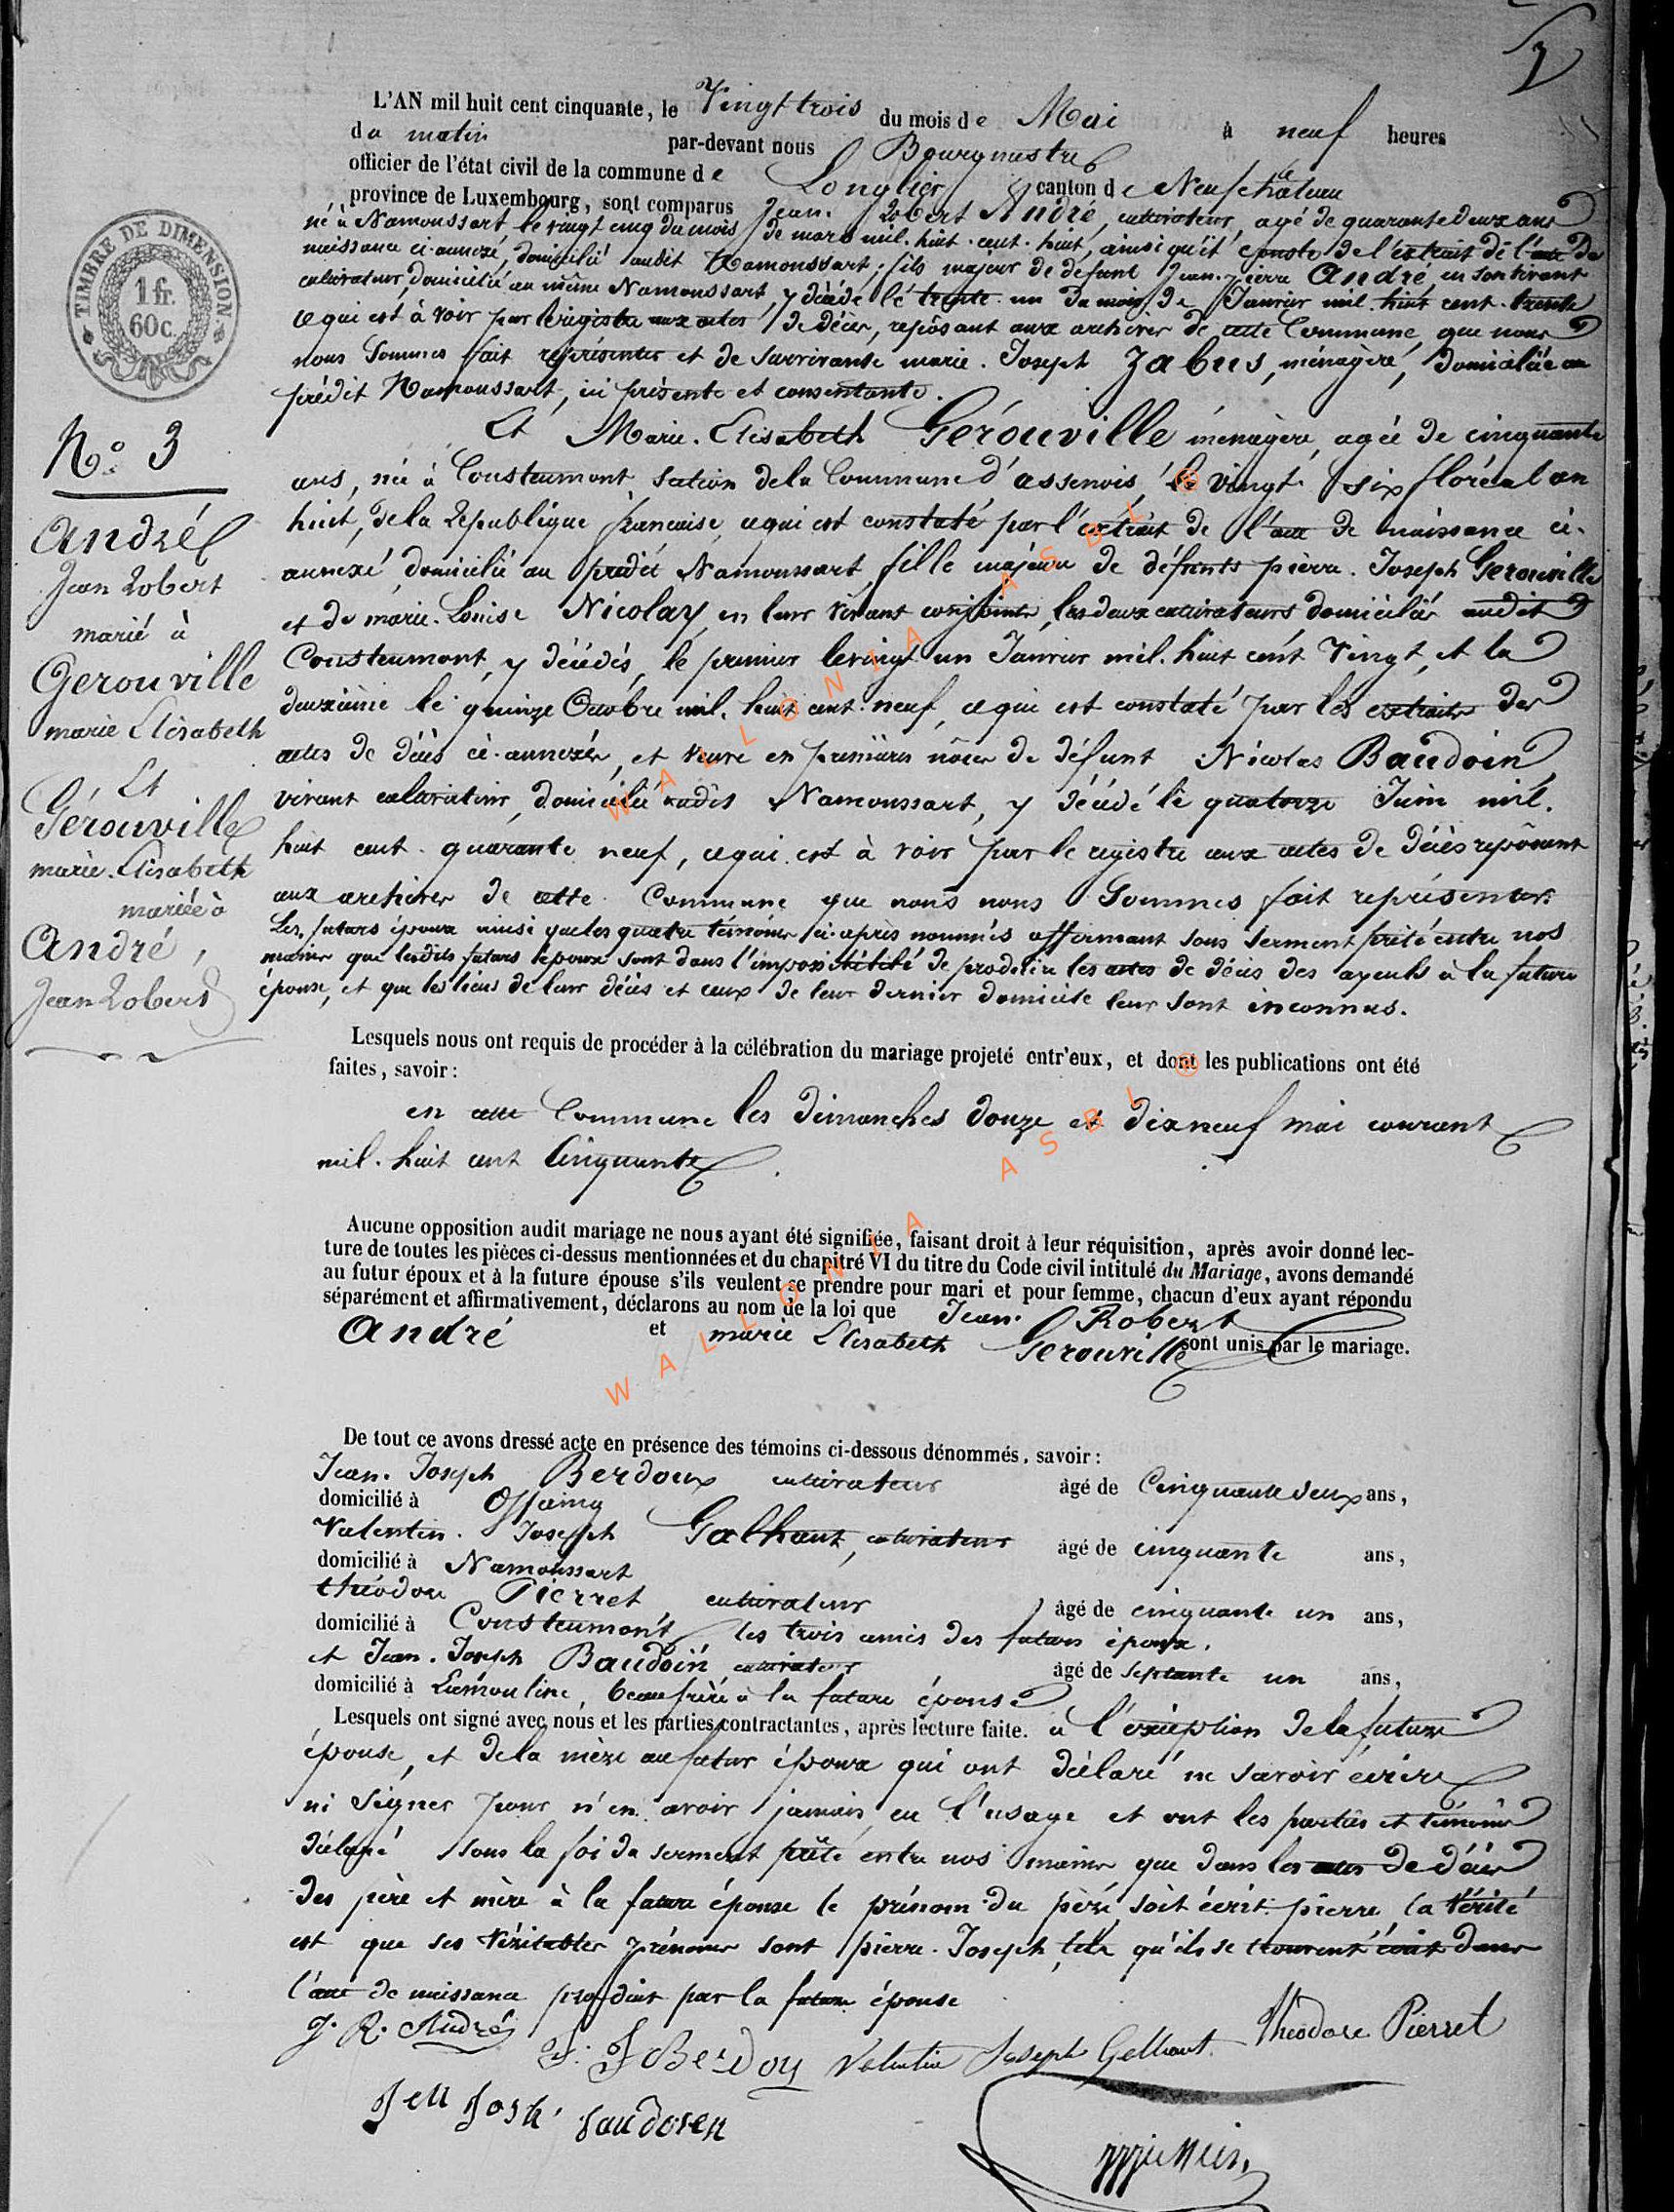 L'AN mil huit cent cinquante, le Vingt trois du mois de Mai à neuf heures
du matin par-devant nous Bourgmestre
officier de l'état civil de la commune de Longlier canton de Neufchâteau
province de Luxembourg, sont comparus Jean. Robert André, cultivateur, agé de quarante deux ans
né à Namoussart le vingt cinq du mois de mars mil. huit. cent. huit, ainsi qu'il conste de l'extrait de l'acte de
naissance ci-annexé, domicilié audit Namoussart, fils majeur de défunt Jean. Pierre André, en son vivant
cultivateur, domicilié au même Namoussart, y décédé le trente un du mois de Janvier mil. huit cent. trente
ce qui est à voir par le registre aux actes de décès, repôsant aux archives de cette Commune, que nous
nous sommes fait représenter et de survivante marie. Joseph Zabus, ménagère, domiciliée au
prédit Namoussart, ici présente et consentante.
Et Marie. Elisabeth Gérouville ménagère, agée de cinquante
ans, née à Cousteumont section de la Commune d'assenois, le vingt six floréal an
huit, de la République française, ce qui est constaté par l'extrait de l'acte de naissance ci-
annexé domiciliée au prédit Namoussart, fille majeure de défunts pierre. Joseph Gerouville
et de marie. Louise Nicolay, en leur vivant conjoints, les deux cultivateurs domiciliés audit
Cousteumont, y décédés, le premier le vingt un Janvier mil. huit cent Vingt, et la
deuxième le quinze Octobre mil. huit cent. neuf, ce qui est constaté par les extraits des
actes de décès ci-annexés, et veuve en premières nôces de défunt Nicolas Baudoin
vivant cultivateur, domicilié audit Namoussart, y décédé le quatorze Juin mil.
huit cent. quarante neuf, ce qui est à voir par le registre aux actes de décès repôsant
aux archives de cette Commune que nous nous Sommes fait représenter.
Les futurs époux ainsi que les quatre témoins ci-après nommés affirmant sous serment prêté entre nos
mains que lesdits futurs époux sont dans l'impossibilité de produire les actes de décès des ayeuls à la future
épouse, et que les lieux de leur décès et ceux de leur dernier domicile leur sont inconnus.
N.° 3
André
Jean Robert
marié à
Gerouville
marie Elisabeth
Et
Gérouville
marie. Elisabeth
mariée à
André,
Jean Robert
TIMBRE DE DIMENSION
1 fr.
60 c.
Lesquels nous ont requis de procéder à la célébration du mariage projeté entr'eux, et dont les publications ont été
faites, savoir:
en cette Commune les dimanches douze et dixneuf mai courant
mil. huit cent Cinquante.
Aucune opposition audit mariage ne nous ayant été signifiée, faisant droit à leur réquisition, après avoir donné lec-
ture de toutes les pièces ci-dessus mentionnées et du chapitré VI du titre du Code civil intitulé du Mariage, avons demandé
au futur époux et à la future épouse s'ils veulent se prendre pour mari et pour femme, chacun d'eux ayant répondu
séparément et affirmativement, déclarons au nom de la loi que Jean. Robert
André et marie Elisabeth Gerouville sont unis par le mariage.
De tout ce avons dressé acte en présence des témoins ci-dessous dénommés, savoir:
Jean. Joseph Berdoux cultivateur âgé de Cinquante deux ans,
domicilié à Offaing
Valentin. Joseph Galhaut, cultivateur âgé de cinquante ans,
domicilié à Namoussart
théodore Pierret cultivateur âgé de cinquante un ans,
domicilié à Cousteumont les trois amis des futurs époux.
et Jean. Joseph Baudoin, cultivateur âgé de septante un ans,
domicilié à Lamouline, beau frère à la future épouse
Lesquels ont signé avec nous et les parties contractantes, après lecture faite. à l'exception de la future
épouse, et de la mère au futur époux qui ont déclaré ne savoir écrire
ni signer pour n'en avoir jamais eu l'usage et ont les parties et témoins
déclaré sous la foi du serment prêté entre nos mains que dans les actes de décès
des père et mère à la future épouse le prénom du père soit écrit. pierre la vérité
est que ses véritables prénoms sont pierre. Joseph, tels qu'ils se trouvent écrit dans
l'acte de naissance produit par la future épouse
J. R. André
J. J Berdou Valentin Joseph Gelhaut Théodore Pierret
WALLONIA ASBL ®
WALLONIA ASBL ®